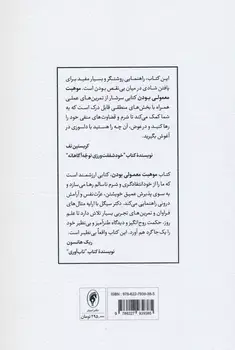 این کتاب، راهنمایی روشنگر و بسیار مفید برای
یافتن شادی در میان بی‌نقص نبودن است. موهبت
معمولی بودن، کتابی سرشار از تمرین‌های عملی
همراه با بخش‌های منطقی قابل درک است که به
شما کمک می‌کند تا شرم و قضاوت‌های منفی خود را
رها کنید و در عوض، آن چه را هستید با دلسوزی در
آغوش بگیرید.
کریستین نف
نویسندهٔ کتاب "خودشفقت‌ورزی توجه‌آگاهانه"
کتاب موهبت معمولی بودن، کتابی ارزشمند است
که ما را از خودانتقادگری و شرم ناسالم رها می‌سازد و
به سوی پذیرش عمیق خویشتن، عزّت‌نفس و آرامش
رهنمون می‌شود. دکتر سیگل با ارایه مثال‌های
فراوان و تمرین‌های تجربی بسیار تلاش دارد تا علم
روز، حکمت روح‌انگیز و دیدگاه طنزآمیز و بی‌نظیر خود
را یک‌جا گرد هم آورد. این کتاب واقعاً بی‌نظیر است.
ریک هانسون
نویسندهٔ کتاب "تاب‌آوری"
۲۹۵,۰۰۰ تومان